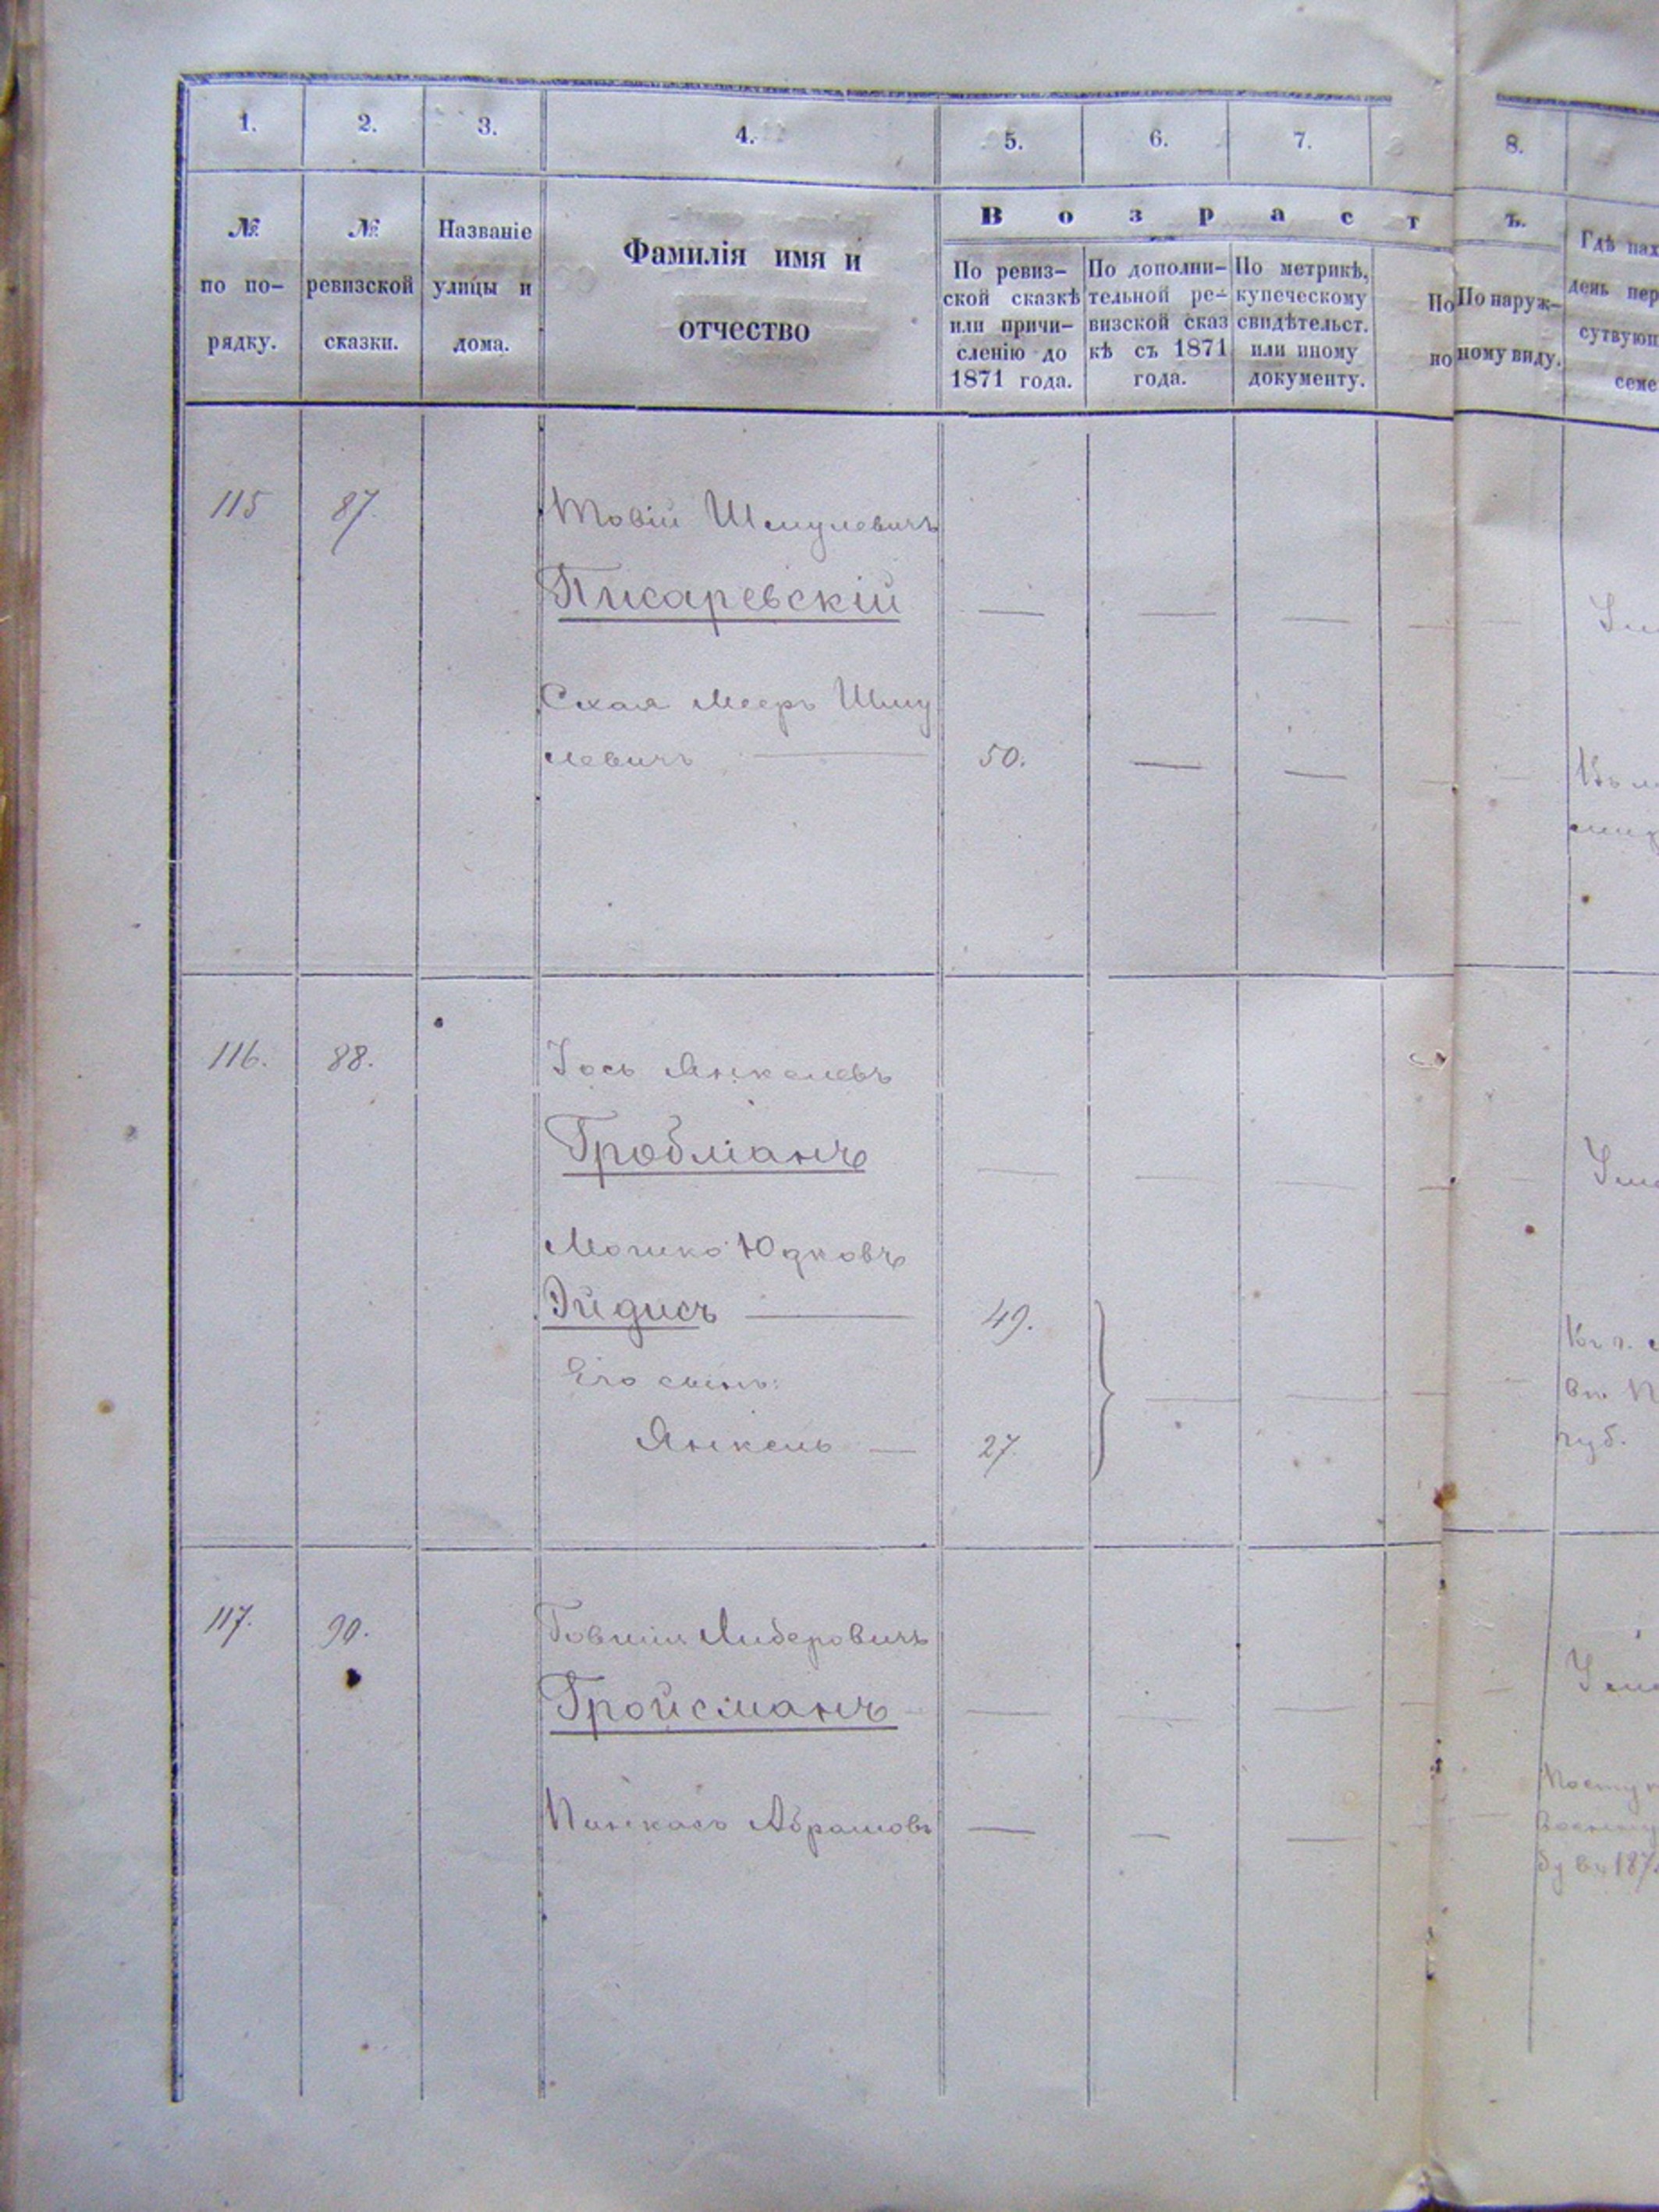 1. 2. 3. 4. 5. 6. 7. 8.
№ по по-рядку.
№ ревизской сказки.
Названіе улицы и дома.
Фамилія имя и
отчество
В о з р а с т ъ.
По ревиз-
ской сказкѣ
или причи-
сленію до
1871 года.
По дополни-
тельной ре-
визской сказ
кѣ съ 1871
года.
По метрикѣ,
купеческому
свидѣтельст.
или иному
документу.
По
по
По наруж-
ному виду.
Гдѣ нах
день пер
сутвующ
семе
115 87. Товій Шмулевичъ
Писаревскій — — — — —
Схая Мееръ Шму
левичъ — 50. — — — —
116. 88. Іось Янкелевъ
Гробманъ — — — — —
Мошко Юдковъ
Эйдисъ — 49.
Его сынъ:
Янкель — 27. — — — —
губ.
117. 90. Говшія Либеровичъ
Гройсманъ — — — — —
Пинкасъ Абрамовъ — — — —
Поступ